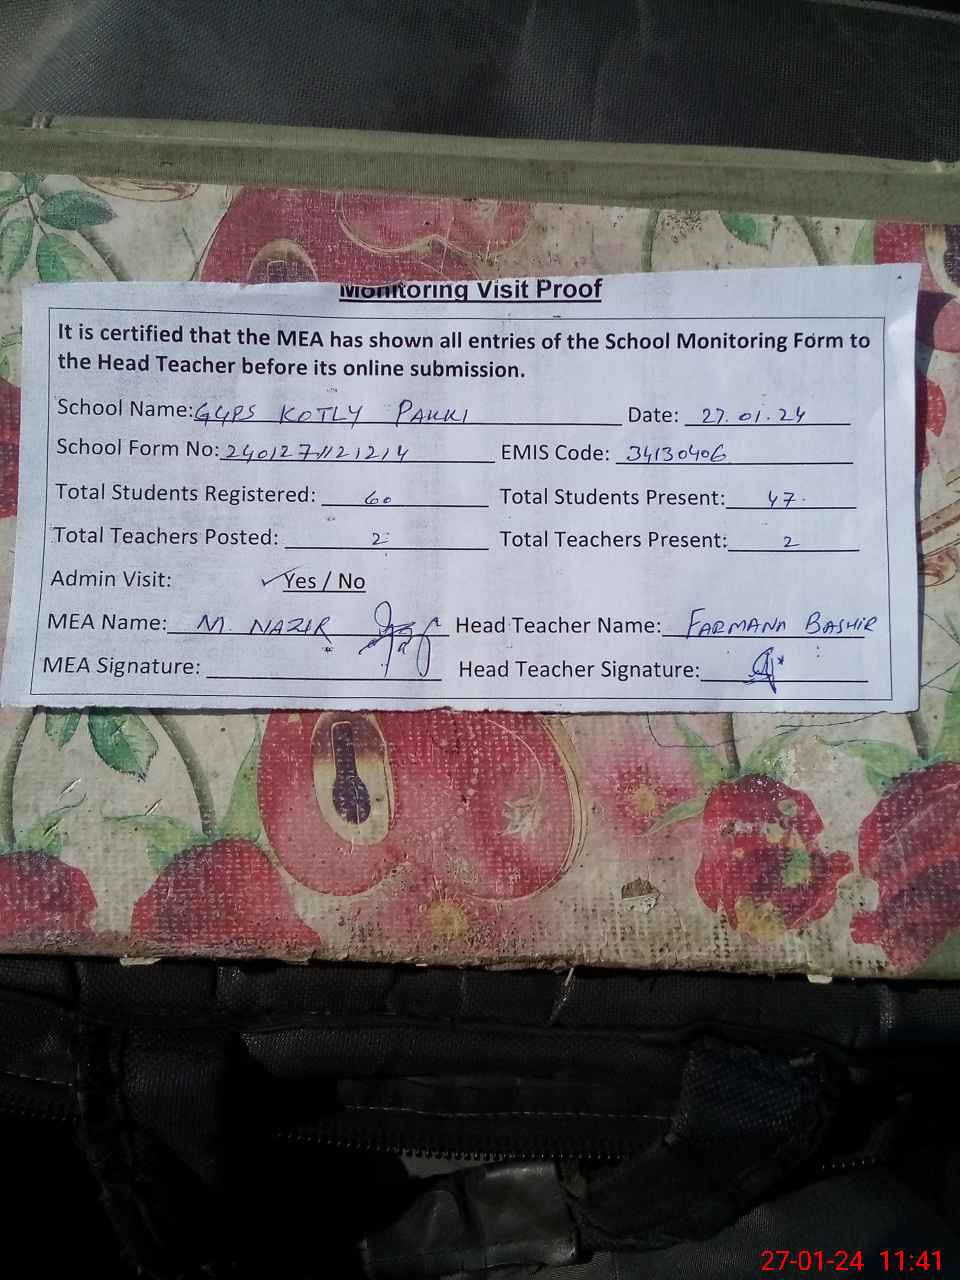 Monitoring Visit Proof
It is certified that the MEA has shown all entries of the School Monitoring Form to
the Head Teacher before its online submission.
School Name: GGPS KOTLY PAKKI Date: 27.01.24
School Form No: EMIS Code: 34130406
Total Students Registered: 60 Total Students Present: 47.
Total Teachers Posted: 2 Total Teachers Present: 2
Admin Visit: ✓Yes / No
MEA Name: M. NAZIR Head Teacher Name: FARMANA BASHIR
MEA Signature: Head Teacher Signature:
27-01-24 11:41